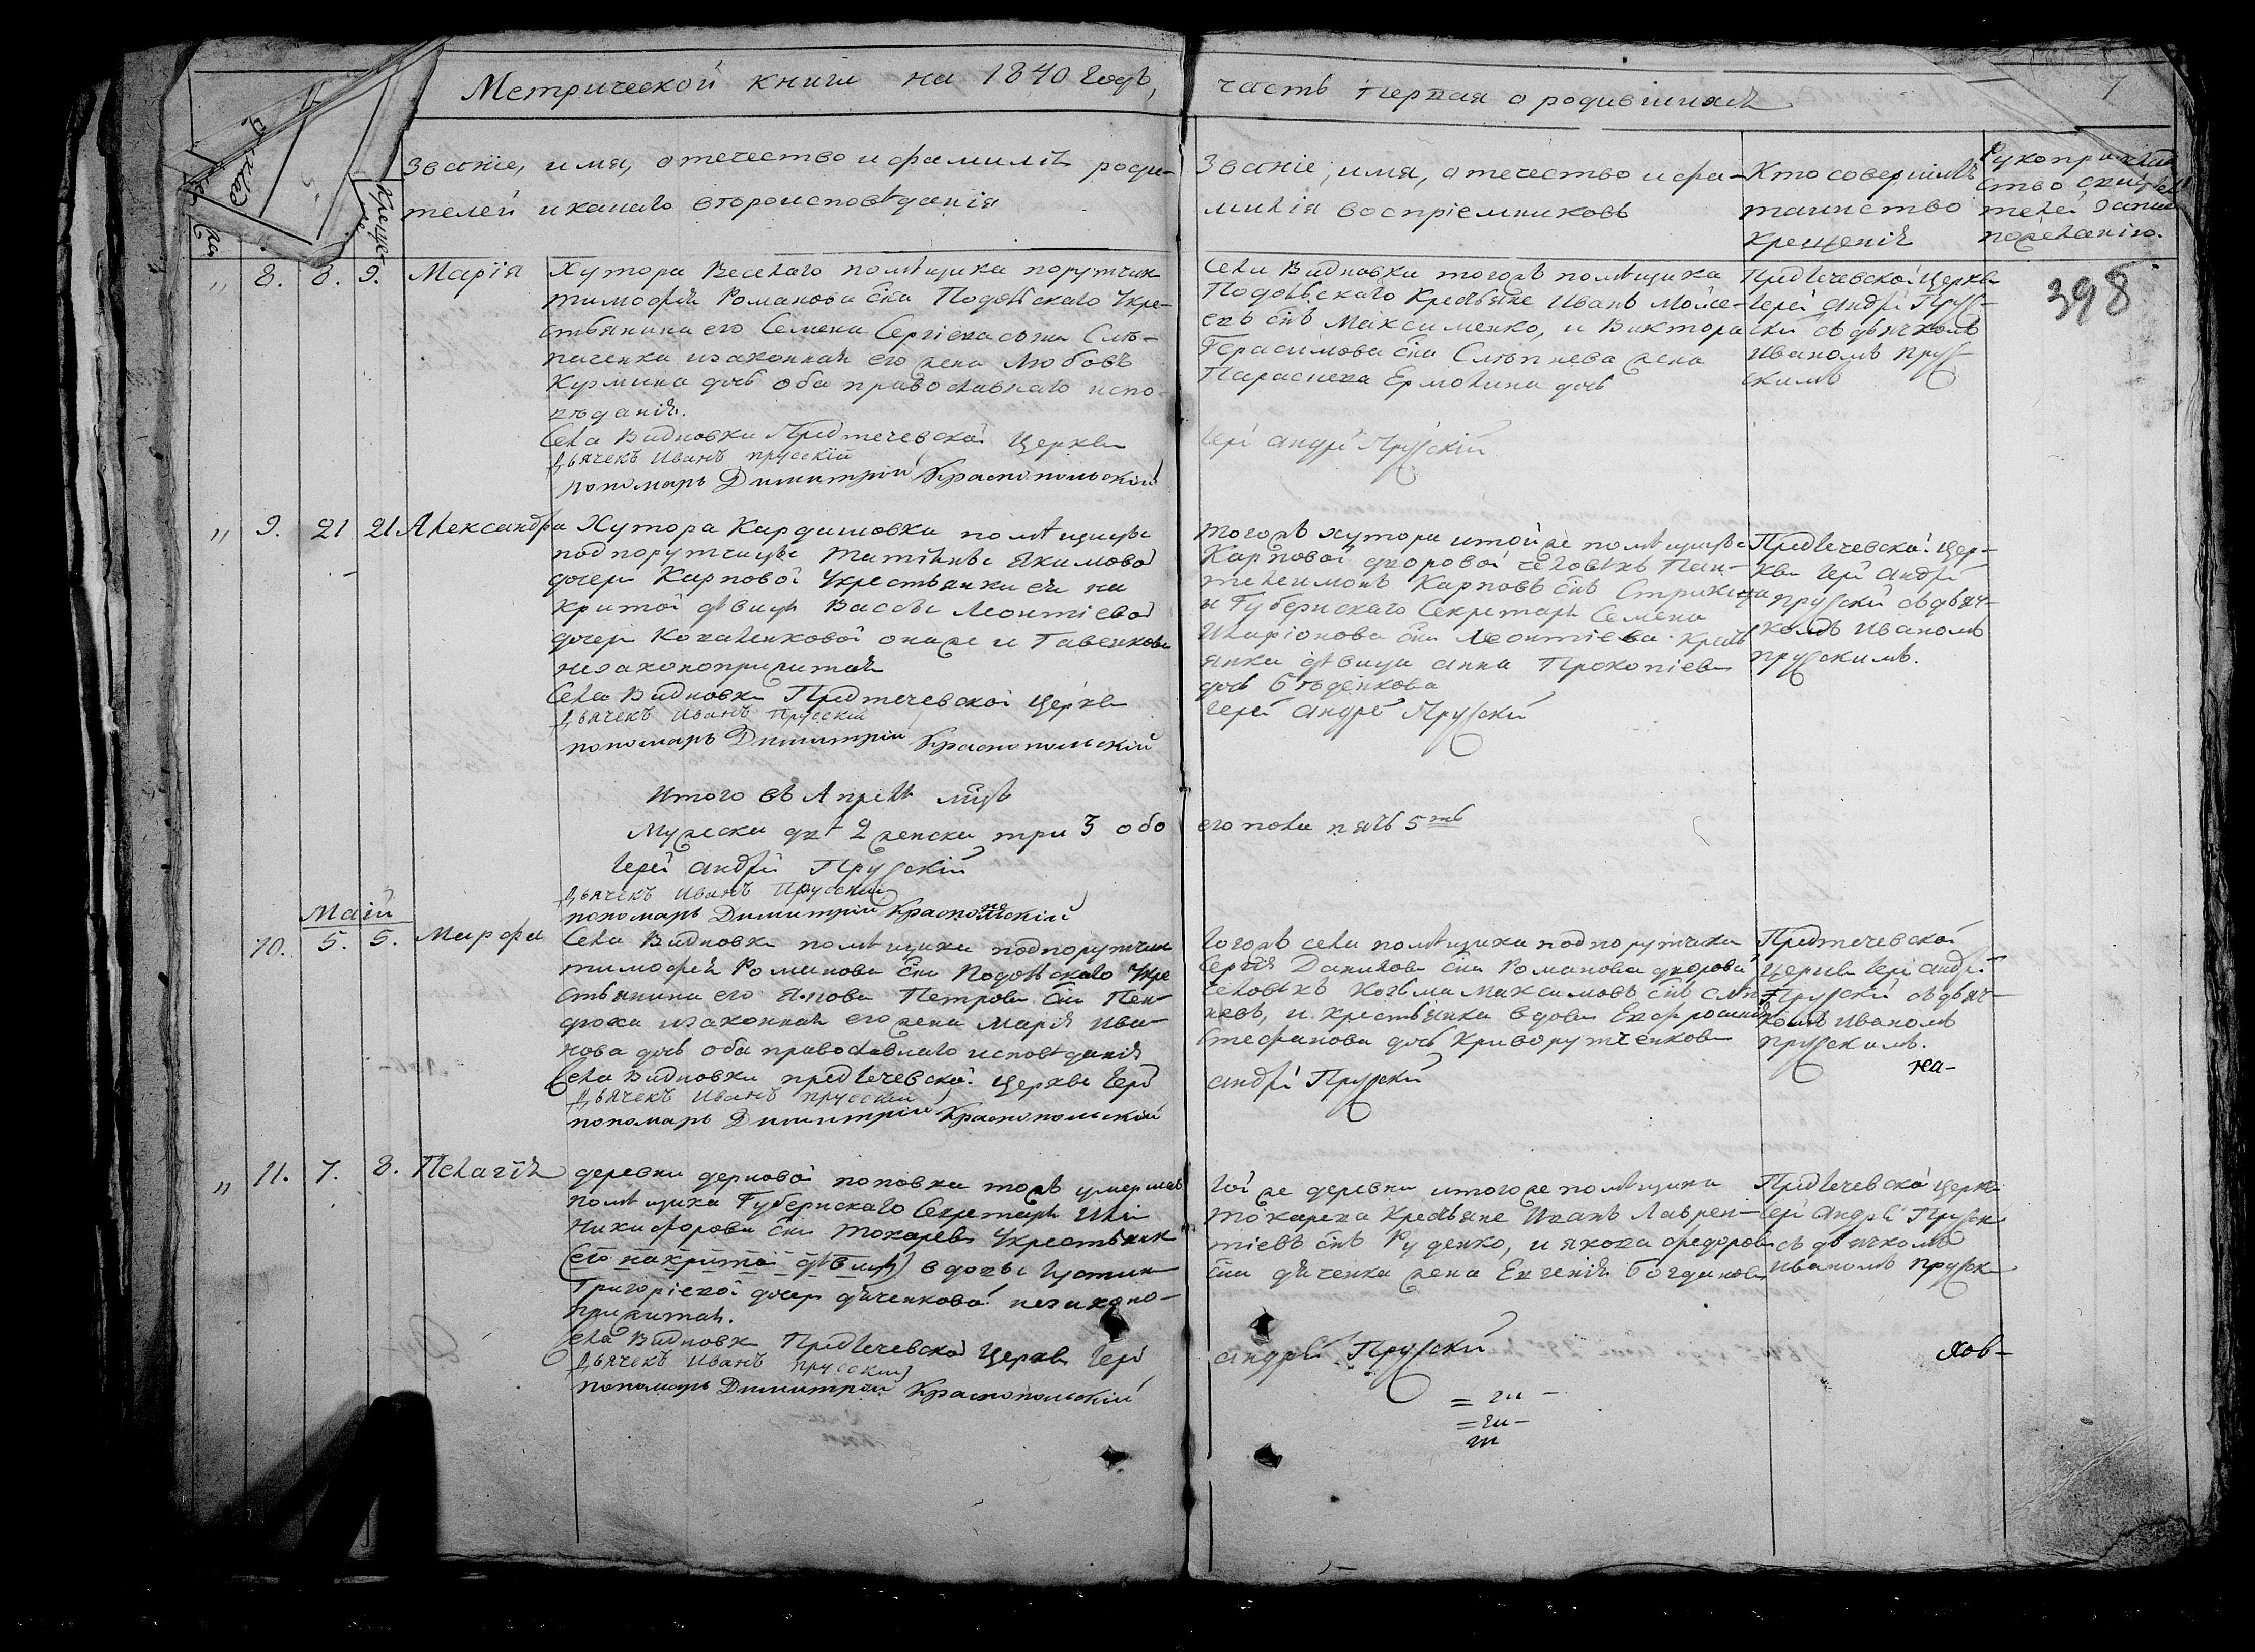 Метрической книги на 1840 Годъ,
часть первая о родившихся
7
Званіе, имя, отечество и фамилія роди-
телей и какаго вѣроисповѣданія
Званіе, имя, отечество и фа-
милія воспріемниковъ
Кто совершилъ
таинство
крещенія
Рукоприклад
ство свидѣ
телей записи
пожеланію.
398
" 8. 8. 9. Марія
Хутора Веселаго помѣщика порутчик
тимофея Романова сна Подольскаго Укре-
стьянина его Семена Сергіева сына Слѣ-
пченка изаконная его жена Любовь
Кузмина дочь оба православнаго испо-
вѣданія.
Села Видновки Предтечевской Церкви
Дьячекъ Иванъ Прусскій
пономарь Димитрій Краснопольскій
Села Видновки тогожъ помѣщика
Подольскаго Крестьяне Иванъ Мойсе-
евъ снъ Максименко, и Виктора
Герасимова сна Слѣпнева жена
Параскева Ермолина дочь
Іерей Андрей Прусскій
Предтечевской Церкви
Іерей Андрей Прус-
скій съ дьячкомъ
Иваномъ Прус-
скимъ
" 9. 21 21 Александра
Хутора Кардашовки помѣщицы
подпорутчицы Татіаны Якимовой
дочери Карповой Укрестьянки ея на
критой дѣвицы Вассы Леонтіевой
дочери Коваленковой онаже и Гавенкова
незаконоприжитая
Села Видновки Предтечевской Церкви
Дьячекъ Иванъ Прусскій
пономарь Димитрій Краснопольскій
тогожъ хутора итойже помѣщицы
Карповой дворовой человѣкъ Пан-
телеимонъ Карповъ снъ
и Губернскаго Секретаря Семена
Иларіонова сна Леонтіева Крест
янка дѣвица Анна Прокопіева
дочь Бѣденкова
Іерей Андрей Прусскій
Предтечевской Цер-
кви Іерей Андрей
Прусскій съ дьяч-
комъ Иваномъ
Прусскимъ.
Итого въ Апрелѣ мцѣ
Мужеска два 2 женска три 3 обо
его пола пять 5 ть
Іерей Андрей Прусскій
Дьячекъ Иванъ Прусскій
пономарь Димитрій Краснопольскій
Маій
10. 5. 5. Марфа
Села Видновки помѣщика подпорутчик
тимофея Романова сна Подольскаго Укре
стьянина его Якова Петрова сна Пен-
дюха изаконная его жена Марія Ива-
нова дочь оба православнаго исповѣданія
Села Видновки предтечевской Церкви Іерей
Дьячекъ Иванъ Прусскій
пономарь Димитрій Краснопольскій
Тогожъ села помѣщика подпорутчика
Сергѣя Данилова сна Романова дворовой
человѣкъ Козьма Максимовъ снъ Слѣп
невъ, и крестьянка вдова Евфросинія
Стефанова дочь Криворутченкова
Андрей Прусскій
Предтечевской
Церкви Іерей Андрей
Прусскій съ дьяч-
комъ Иваномъ
Прусскимъ.
на-
" 11. 7. 8. Пелагія
деревни дерновой поповки тожъ умершаго
помѣщика Губернскаго Секретаря Иліи
Никифорова сна Токарева Укрестьянк
(его накритой дѣвицы) вдовы Іустины
Григоріевой дочери дяченковой незаконо-
прижитая.
Села Видновки Предтечевской Церкви Іерей
Дьячекъ Иванъ Прусскій
пономарь Димитрій Краснопольскій
Той же деревни итогоже помѣщика
Токарева Крестьяне Иванъ Лаврен-
тіевъ снъ Руденко, и Якова федорова
сна дяченка жена Евгенія Богданова
Андрей Прусскій
Предтечевской церкви
Іерей Андрей Прусск
съ дьячкомъ
Иваномъ Прусск
хов-
= ги -
= ги -
ги